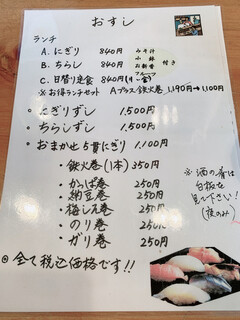 おすし
ランチ
A. にぎり 840円 みそ汁
B. ちらし 840円 小鉢 お新香 付き
C. 日替り定食 840円(月〜金) フルーツ
※お得ランチセット Aプラス鉄火巻 1,190円→1,100円
・にぎりずし 1,500円
・ちらしずし 1,500円
・おまかせ5貫にぎり 1,100円
・鉄火巻(1本)350円
・かっぱ巻 250円
・納豆巻 250円
・梅しそ巻 250円
・のり巻 250円
・ガリ巻 250円
※酒の肴は
白板を
見て下さい!
(夜のみ)
◎全て税込価格です!!